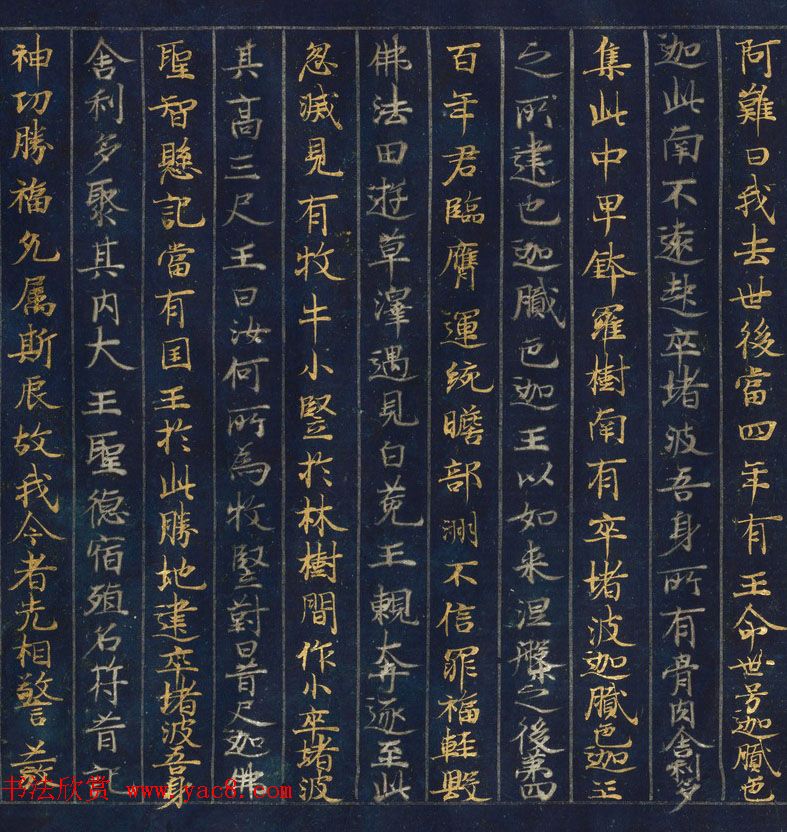 阿難曰我去世後當四年有王命世号迦膩色
迦此南不遠起卒堵波吾身所有骨肉舍利多
集此中卑鉢羅樹南有卒堵波迦膩色迦王
之所建也迦膩色迦王以如来涅槃之後第四
百年君臨膺運統瞻部洲不信罪福軽毀
佛法田遊草澤遇見白菟王親奔逐至此
忽滅見有牧牛小竪於林樹間作小卒堵波
其高三尺王曰汝何所為牧竪對曰昔尺迦佛
聖智懸記當有国王於此勝地建卒堵波吾身
舍利多聚其内大王聖德宿殖名符昔記
神功勝福允属斯辰故我今者先相警發
书法欣赏 www.yac8.com